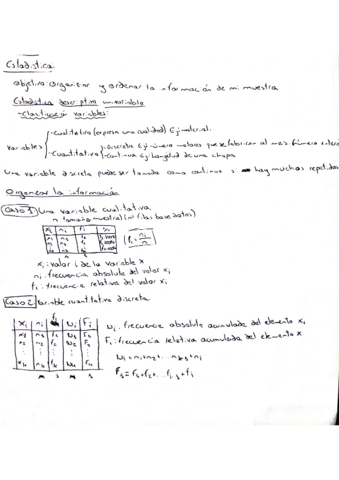 Estadística
Objetivo organizar y ordenar la información de mi muestra
Estadística descriptiva univariable
-Clasificación variables:
-Cualitativa (expresa una cualidad) Ej:material:
Variables
-Discreta Ej:número motores que se fabrican al mes.(número entero
-Cuantitativa -Continua Ej:longitud de una chapa
Una variable discreta puede ser tomada como continua si hay muchas repetidos
Organizar la información
Caso 1 Una variable cualitativa.
n tamaño muestral (nº filas base datos)
xi ni fi
fi = ni/n
xi: valor i de la variable x
ni: frecuencia absoluta del valor xi
fi: frecuencia relativa del valor xi
Caso 2 Variable cuantitativa discreta
xi ni fi Ni Fi
x1 n1 f1 N1 F1
x2 n2 f2 N2 F2
xk nk fk Nk Fk
Ni: frecuencia absoluta acumulada del elemento xi
Fi: frecuencia relativa acumulada del elemento x
Ni = n1+n2+...ni-1+ni
Fi = f1+f2+...fi-1+fi